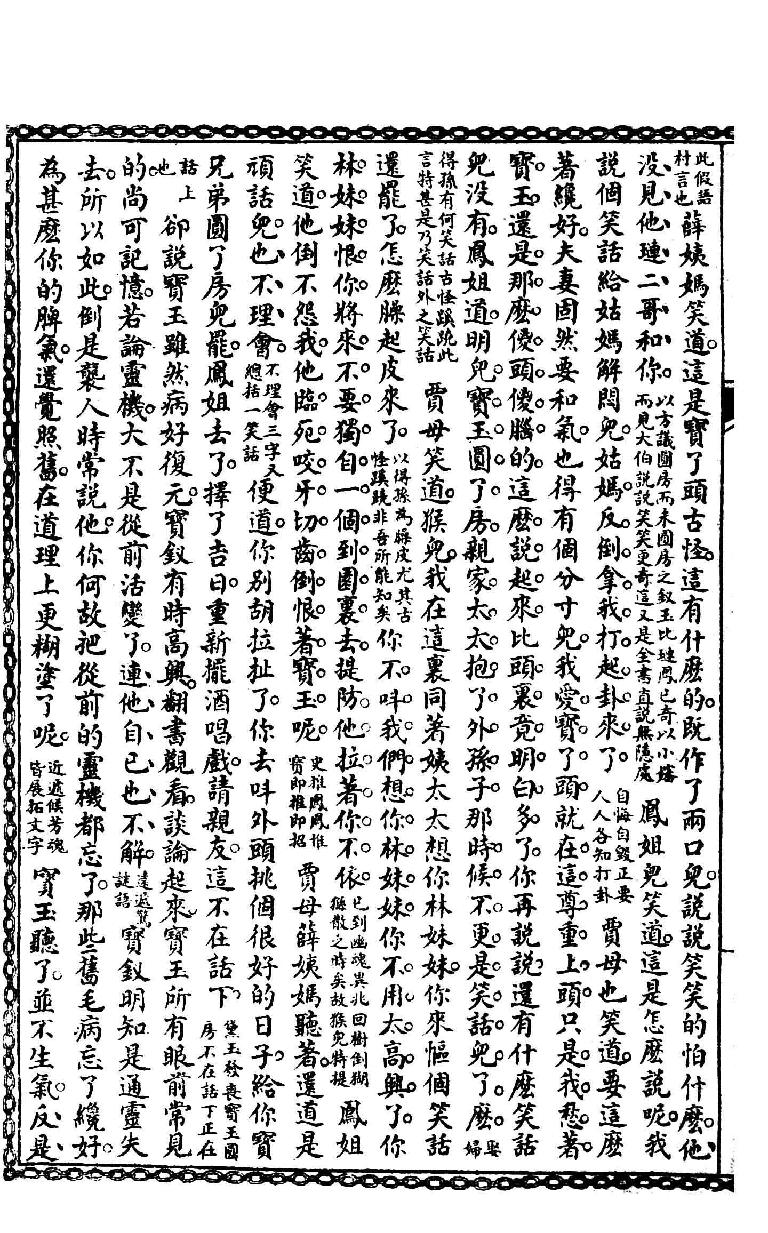 此假語村言也薛姨媽笑道這是寶丫頭古怪這有什麽的既作了兩口兒說說笑笑的怕什麽他
没見他璉二哥和你以方議圓房而未圓房之釵玉比璉鳳已奇以小嬸而見大伯說說笑笑更奇這又是全書直說無隱處鳳姐兒笑道這是怎麽說呢我
說個笑話給姑媽解悶兒姑媽反倒拿我打起卦來了自悔自毀正要人人各知打卦賈母也笑道要這麽
著纔好夫妻固然要和氣也得有個分寸兒我愛寶丫頭就在這尊重上頭只是我愁著
寶玉還是那麽傻頭傻腦的這麽說起來比頭裏竟明白多了你再說說還有什麽笑話
兒没有鳳姐道明兒寶玉圓了房親家太太抱了外孫子那時候不更是笑話兒了麽娶婦
得孫有何笑話古怪蹊蹺此言特甚是乃笑話外之笑話賈母笑道猴兒我在這裏同著姨太太想你林妹妹你來慪個笑話
還罷了怎麽臊起皮來了以得孫為臊皮尤其古怪蹊蹺非吾所能知矣你不呌我們想你林妹妹你不用太高興了你
林妹妹恨你將來不要獨自一個到園裏去提防他拉著你不依已到幽魂異兆回樹倒猢猻散之時矣故猴兒特提鳳姐
笑道他倒不怨我他臨死咬牙切齒倒恨著寶玉呢史推鳳鳳推寶即推即招賈母薛姨媽聽著還道是
頑話兒也不理會不理會三字又總括一笑話便道你別胡拉扯了你去呌外頭挑個很好的日子給你寶
兄弟圓了房兒罷鳳姐去了擇了吉日重新擺酒唱戲請親友這不在話下黛玉發喪寶玉圓房不在話下正在
話上也卻說寶玉雖然病好復元寶釵有時高興翻書觀看談論起來寶玉所有眼前常見
的尚可記憶若論靈機大不是從前活變了連他自已也不解遠遞驚謎語寶釵明知是通靈失
去所以如此倒是襲人時常說他你何故把從前的靈機都忘了那些舊毛病忘了纔好
為甚麽你的脾氣還覺照舊在道理上更糊塗了呢近遞候芳魂皆展拓文字寶玉聽了並不生氣反是